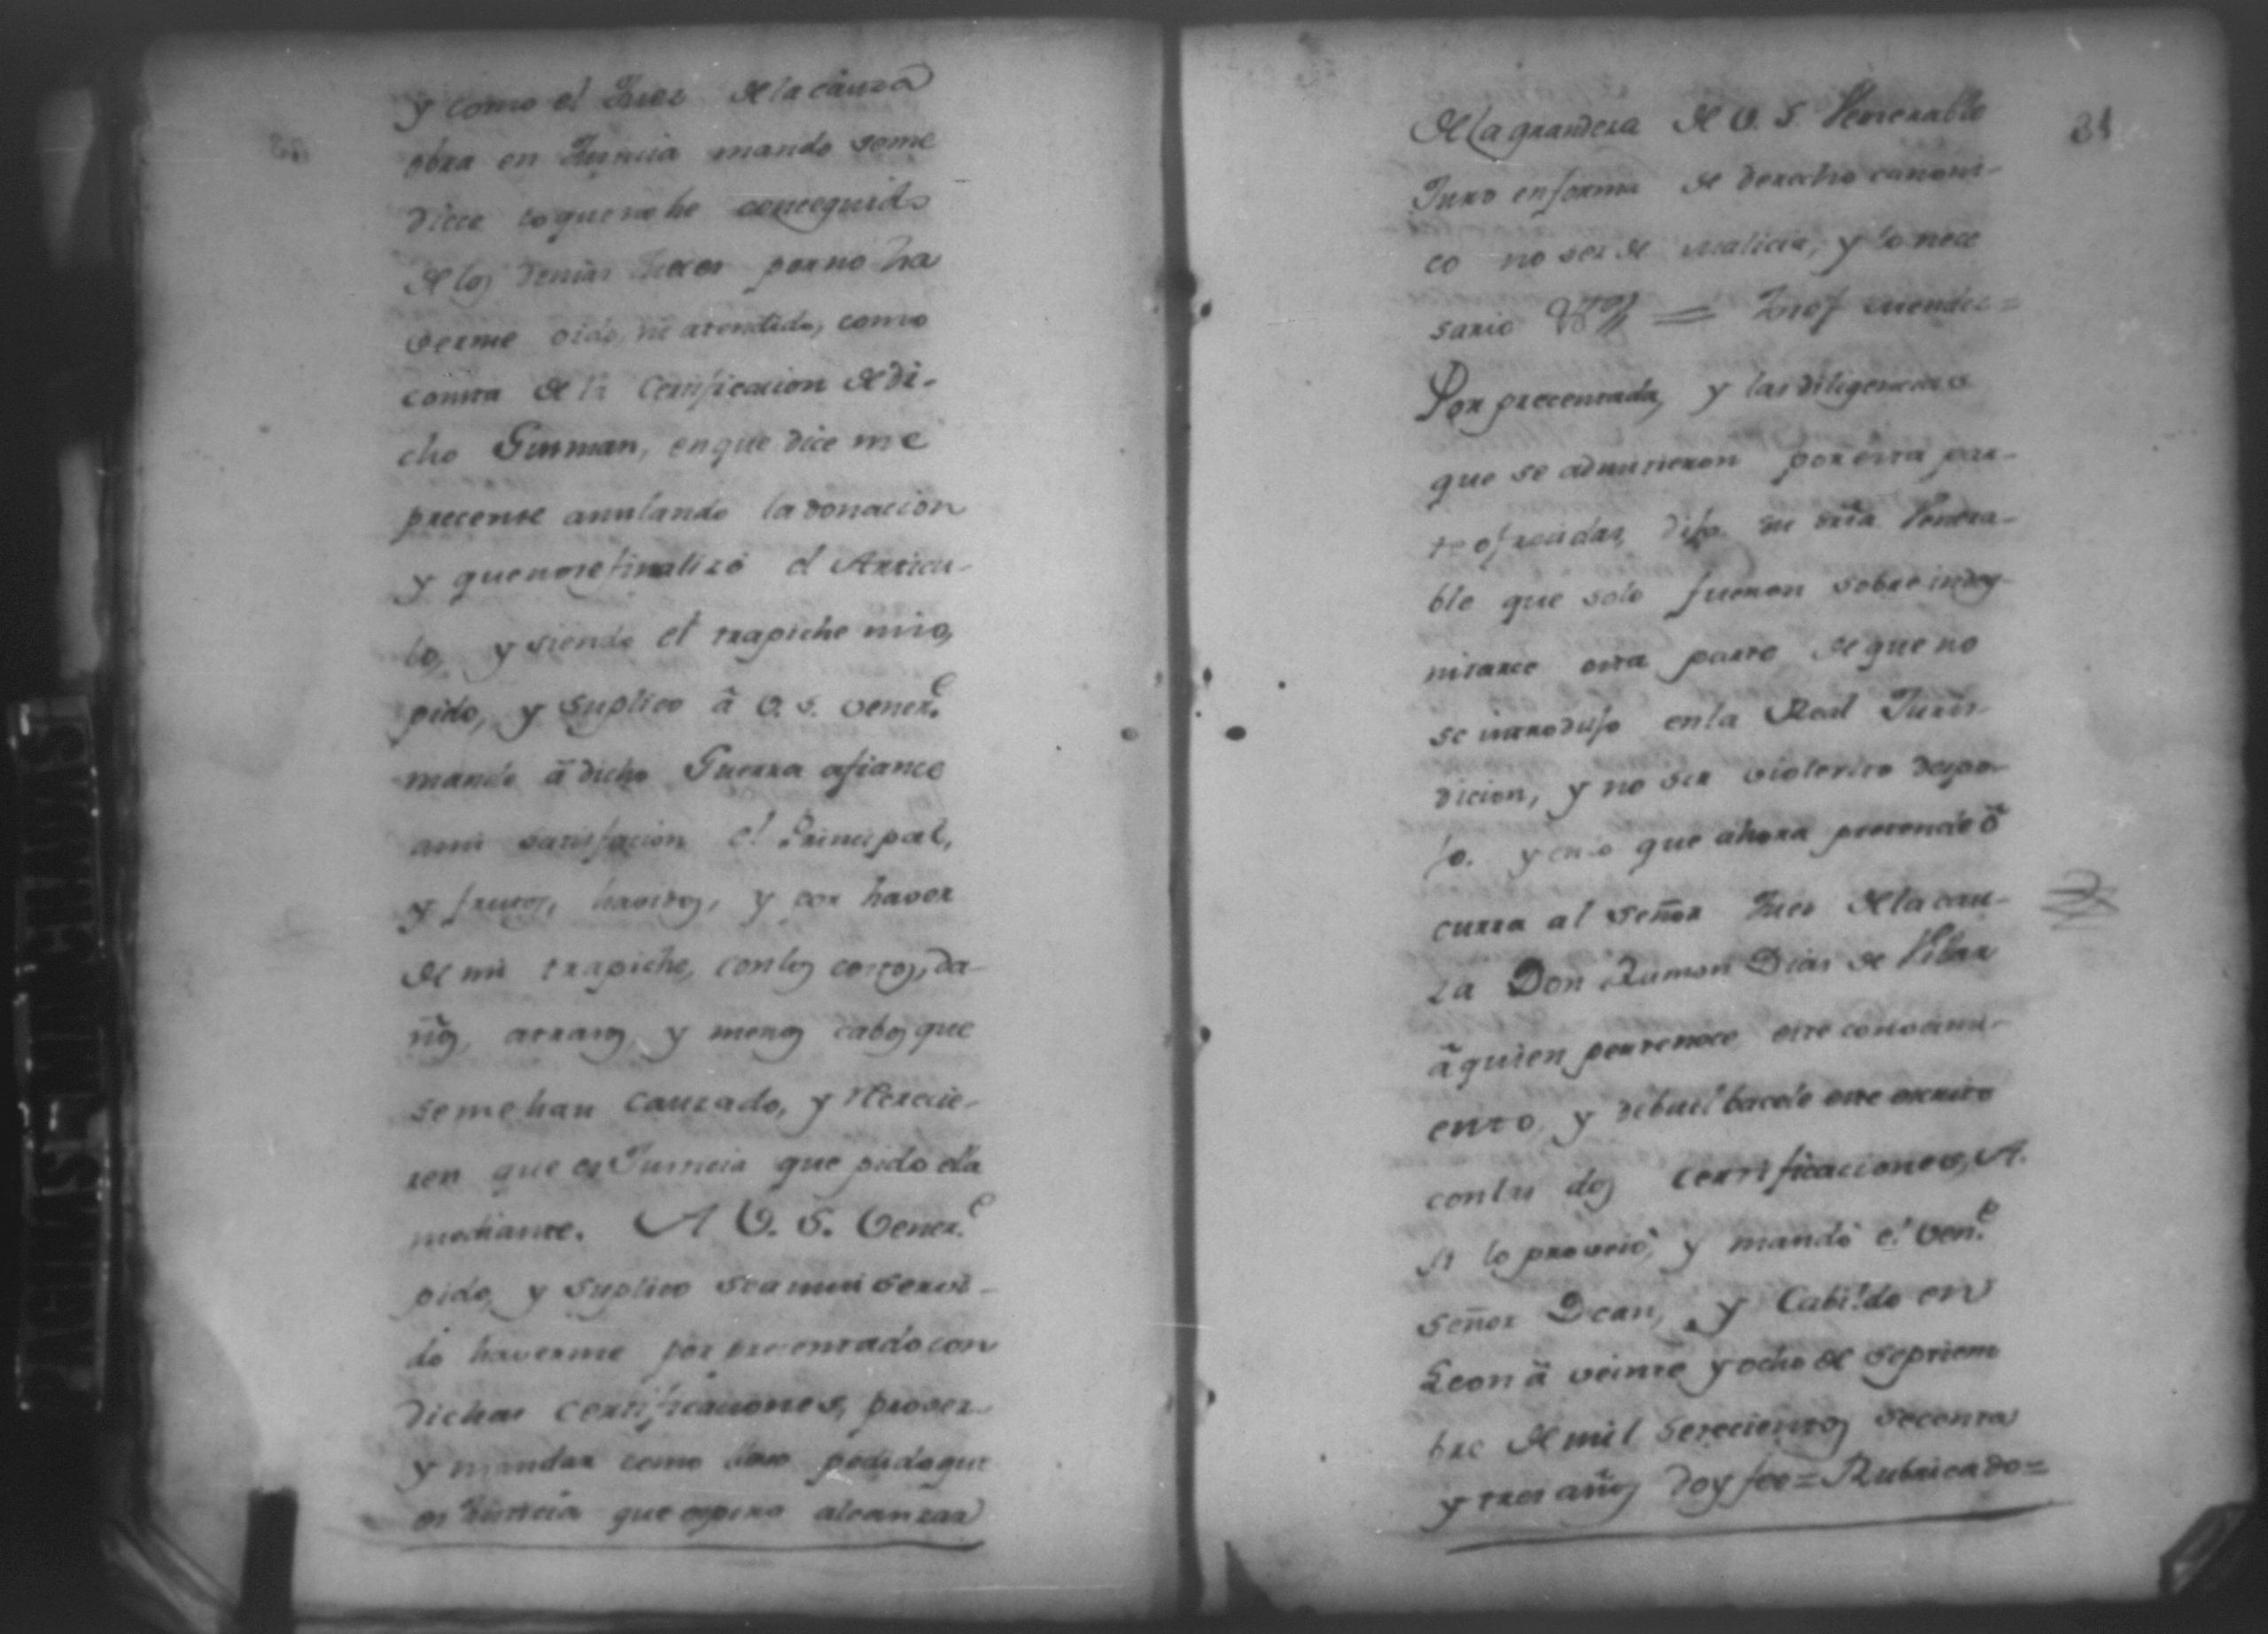 y como el Juez de la cauza
obra en Justicia mando seme
diece loqueno he conceguido
de los demas Jueces por no ha
verme oido, ni atendido, como
consta de la Certificacion de di-
cho Gusman, en que dice me
precente anulando la donacion
y quenose finalizó el Articu-
lo, y siendo el trapiche mio,
pido, y suplico â V. S. vener.e
mande â dicho Guerra afiance
ami satisfacion el Principal,
y frutos, havidos, y por haver
de mi trapiche, conlos costos, da-
ños, atrasos y menos cabos que
seme han cauzado, y Recrecie-
ren que es Justicia que pido ella
mediante. A V. S. Vener.e
pido, y suplico sea mui servi-
do haverme por precentado con
dichas certificaciones, prover
y mandar como llevo pedido que
es Justicia que espero alcanzar
de la grandeza de V. S. Venerable
Juro enforma de derecho canoni-
co no ser de malicia, y lo nece
sario = Mendes =
Por precentada, y las diligencias
que se admitieron por esta par-
te ofrecidas, dijo su sria Venera-
ble que solo fueron sobre indeg-
nisarce esta parte de que no
se introdujo en la Real Juris-
dicion, y no ser violento despo-
jo. y en lo que ahora pretende ô
curra al Señor Juez de la cau-
za Don Ramon Dias de Vilar
â quien pertenece este conocimi-
ento, y debuelbacele este escrito
con las dos certificaciones, A.
si lo proveió, y mandó el Ven.e
Señor Dean, y Cabildo en
Leon â veinte y ocho de Septiem
bre de mil setecientos secenta
y tres años doy fee = Rubricado =